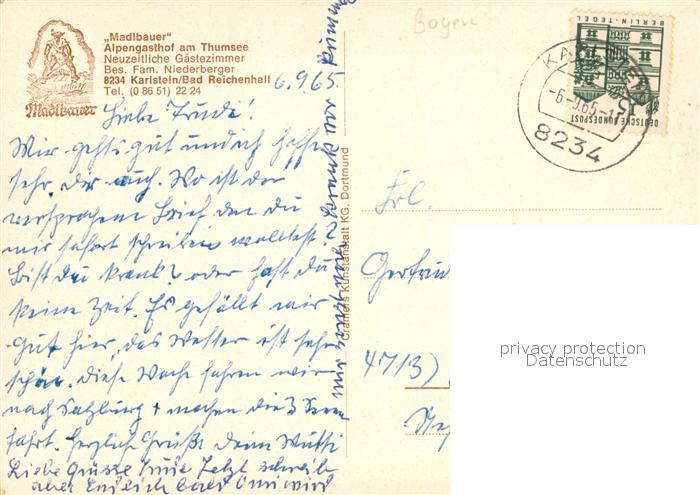 „Madlbauer"
Alpengasthof am Thumsee
Neuzeitliche Gästezimmer
Bes. Fam. Niederberger
8234 Karlstein/Bad Reichenhall
Tel. (0 86 51) 22 24
Madlbauer
6.9.65.
Liebe Trudi!
Mir gehts gut und ich hoffe
sehr, dir auch. Wo ist der
versprochene Brief den du
mir sofort schreiben wolltest?
Bist du krank? oder hast du
keine Zeit. Es gefällt mir
gut hier, das Wetter ist sehr
schön. Diese Woche fahren wir
nach Salzburg + machen die 3 Seen
fahrt. Herzliche Grüße Deine Mutti
Liebe Grüsse Jetzt schreib
aber Endlich bald Omi wird
Cramers Kunstanstalt KG, Dortmund
Bayern
BERLIN-TEGEL
DEUTSCHE BUNDESPOST
15
-6.-9.65.-
8234
Frl.
4713)
privacy protection
Datenschutz